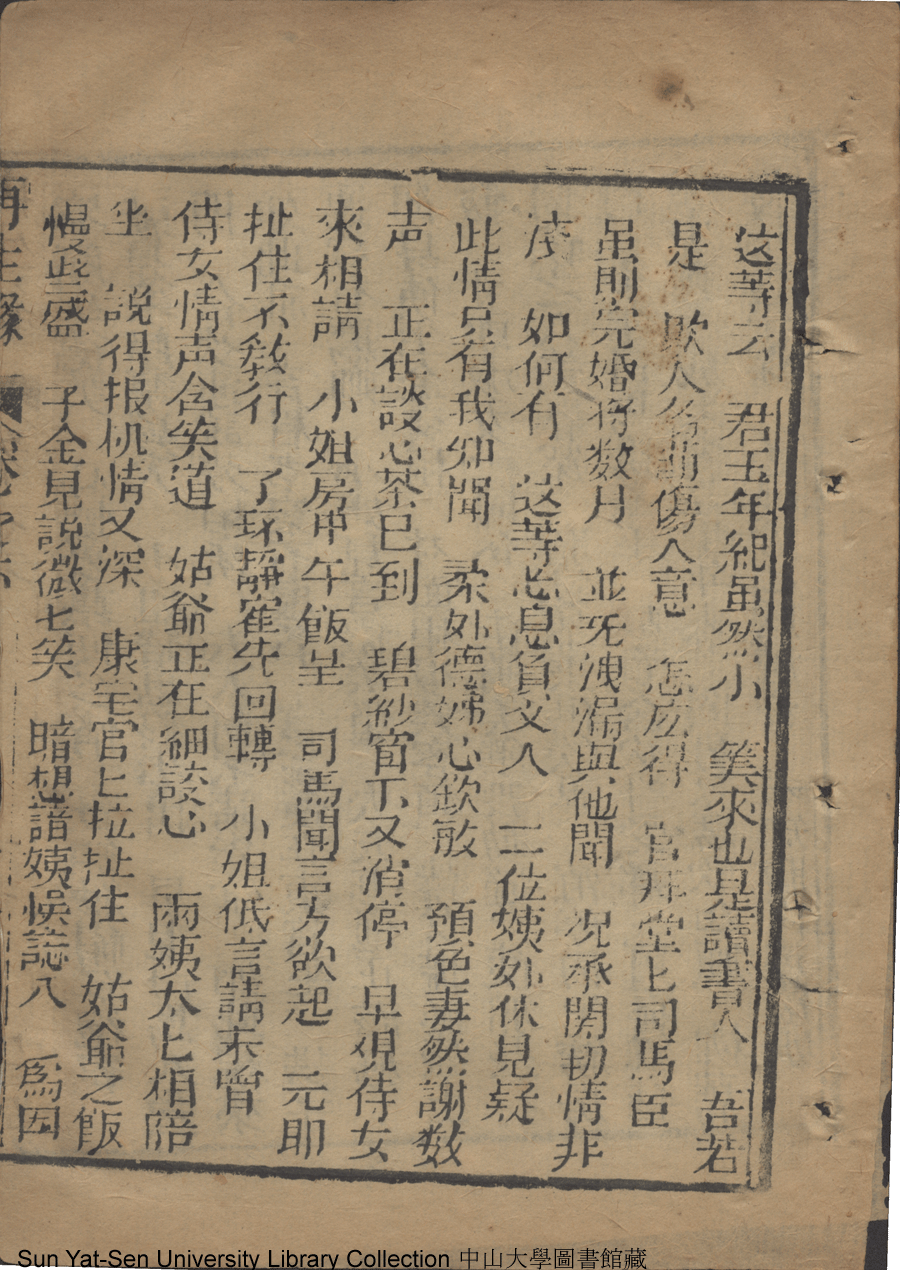 这等云 君玉年紀虽然小 笑來也是讀書人 吾若
是 欺人名節傷人意 怎庅得 官拜堂上司馬臣
虽則完婚将数月 並旡洩漏與他聞 况承関切情非
淺 如何有 这等忘息負文人 二位姨外休見疑
此情只有我卿聞 柔外德姊心欽敬 預色妻然謝数
声 正在談心茶已到 碧紗窗下又消停 早覌侍女
來相請 小姐房中午飯呈 司馬聞言方欲起 元郎
扯住不教行 了环靜寉先回轉 小姐低言請未曾
侍女情声含笑道 姑爺正在細談心 兩姨太上相陪
坐 説得报机情又深 康宅官上拉扯住 姑爺之飯
慢些盛 子金見説微七笑 暗想諳姨悞誌八 爲因
再生緣 卷之六
Sun Yat-Sen University Library Collection 中山大學圖書館藏